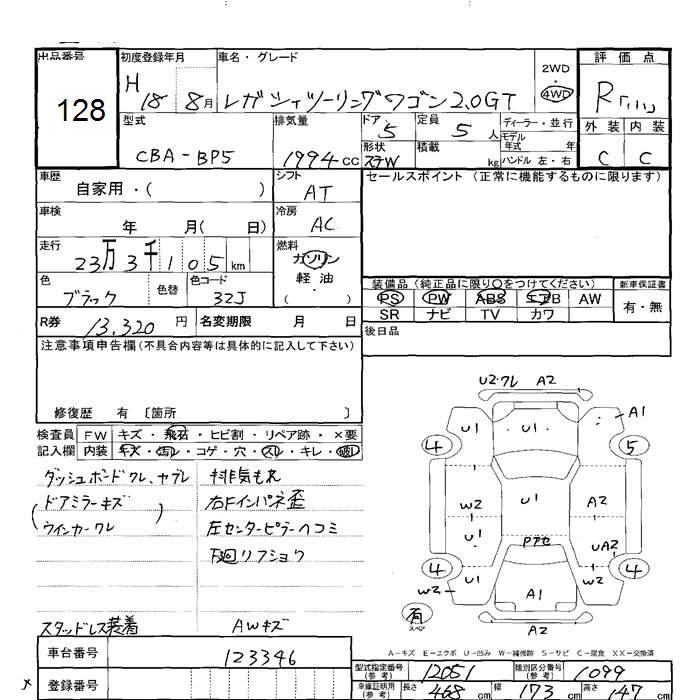 出品番号 初度登録年月 車名・グレード 2WD 評価点
128 H 18 8月 レガシィツーリングワゴン2.0GT 4WD R
型式 排気量 ドア 定員 ディーラー・並行 外装 内装
CBA-BP5 1994cc 5 5人 モデル年式 年 C C
形状 ステW 積載 kg ハンドル 左・右
車歴 自家用・( ) シフト AT セールスポイント (正常に機能するものに限ります)
車検 年 月( 日) 冷房 AC
走行 23万3千105km 燃料 ガソリン 軽油 ( ・ )
色 ブラック 色替 色コード 32J
装備品 (純正品に限り○をつけてください) 新車保証書
PS PW ABS エアB AW 有・無
SR ナビ TV カワ
R券 13,320円 名変期限 月 日 後日品
注意事項申告欄(不具合内容等は具体的に記入して下さい)
修復歴 有 〔箇所 〕
検査員 FW キズ・飛石・ヒビ割・リペア跡・×要
記入欄 内装 キズ・汚レ・コゲ・穴・スレ・キレ・
ダッシュボードワレ、ヤブレ 排気もれ
(ドアミラーキズ 右Fインパネ歪
ウインカーワレ) 左センターピラーヘコミ
下廻リフショク
スタッドレス装着 AWキズ
U2・ワレ A2
U1 U1 U1 A1
4 5
W2 U1 A2
U1 UA2
アナセ
4 U1 W2 4
W2 A1
有 スペア A2
A-キズ E-エクボ U-凹み W-補修跡 S-サビ C-腐食 XX-交換済
車台番号 123346
型式指定番号 (参考) 12051 類別区分番号 (参考) 1099
登録番号
車庫証明用 (参考) 長さ 468cm 幅 173cm 高さ 147cm